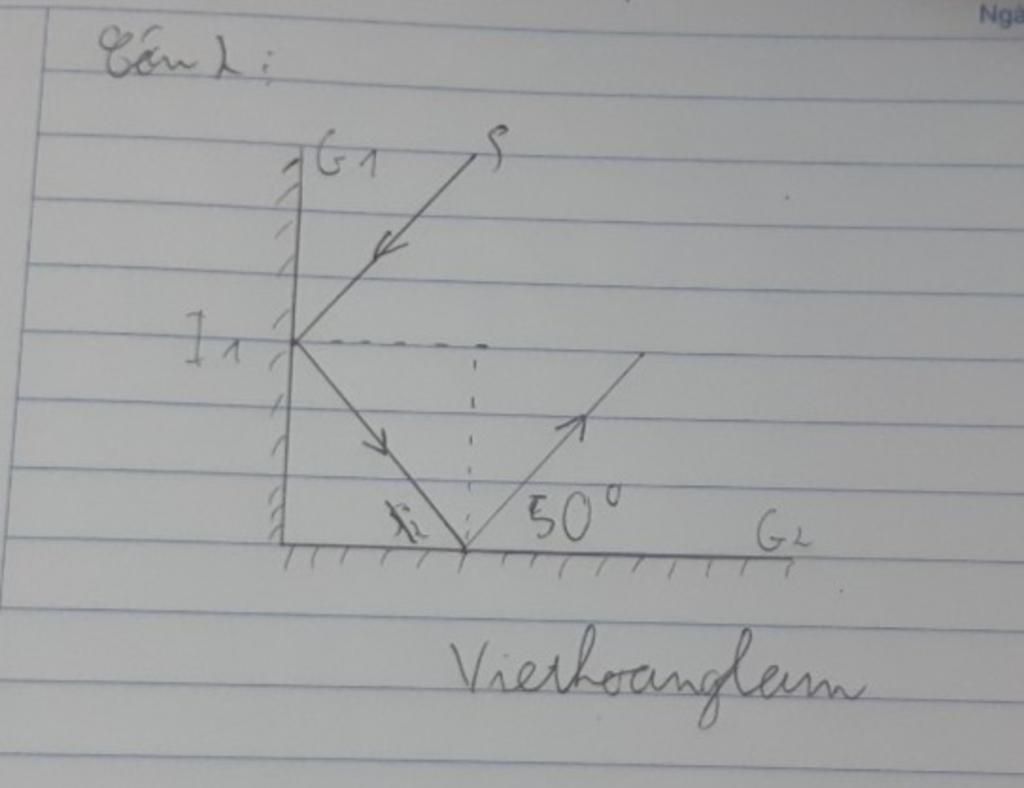 Ngà
G1
S
I1
50°
G2
Viethoanglam